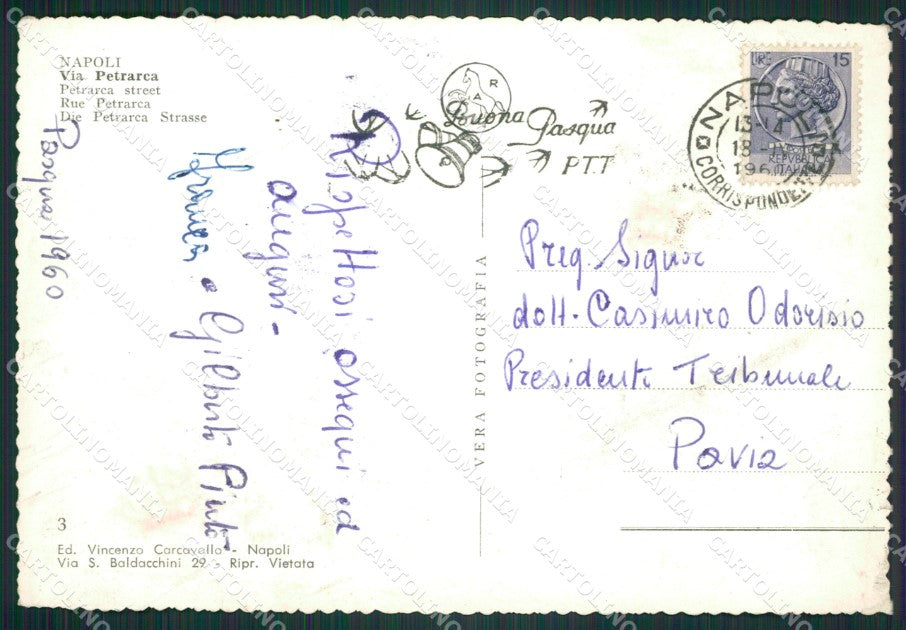 NAPOLI
Via Petrarca
Petrarca street
Rue Petrarca
Die Petrarca Strasse
Pasqua 1960
Rispettosi ossequi ed
auguri -
e Gilberto Pinto
VERA FOTOGRAFIA
A R
Buona Pasqua
PTT
LIRE 15
REPVBBLICA
ITALIANA
NAPOLI
CORRISPONDENZE
13-14
18
196
Preg. Signor
dott. Casimiro Odorisio
Presidente Tribunale
Pavia
3
Ed. Vincenzo Carcavallo - Napoli
Via S. Baldacchini 29 - Ripr. Vietata
CARTOLINOMANIA